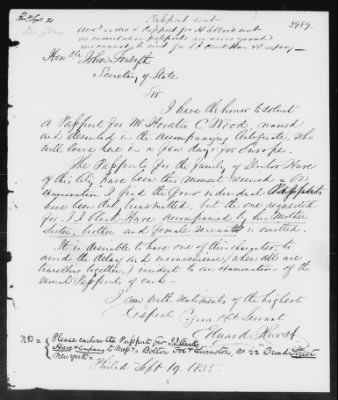 Passport sent
3989.
Hon'ble John Forsyth
Secretary of State
Sir
I have the honor to solicit
a Passport for Mr Horatio C Wood, named
and described in the accompanying Certificate, who
will leave here in a few days for Europe.
The Passports for the family of Doctor Hare
of this City have been this moment received & on
examination I find the four individual Passports
have been sent, transmitted, but the one requested
for J. J. Clark Hare accompanied by his Mother
Sister, brother and female Servant is omitted.
It is desirable to have one of this character, to
avoid the delay and inconvenience, when all are
travelling together, incident to an examination of the
several Passports of each—
I am with sentiments of the highest
Respect Your Obt Servant
Edward Hurst
NB = Please enclose the Passport for J. J. Clark
Hare & Company to Messrs Bolton Fox & Livingston, No 22 Broad Street
New York
Philad Sept 19. 1835.